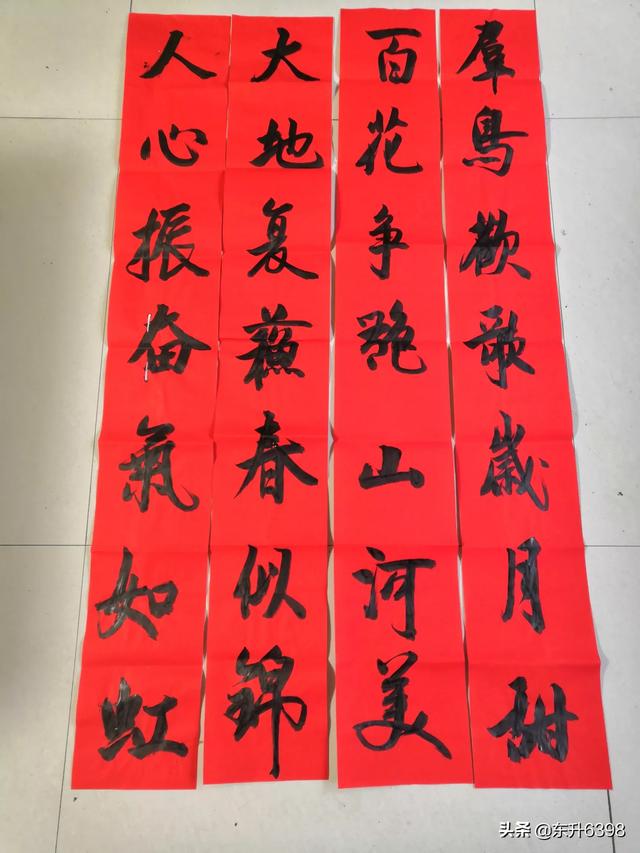 羣鳥歡歌歲月甜
百花争艷山河美
大地复蘇春似錦
人心振奋氣如虹
头条 @东升6398